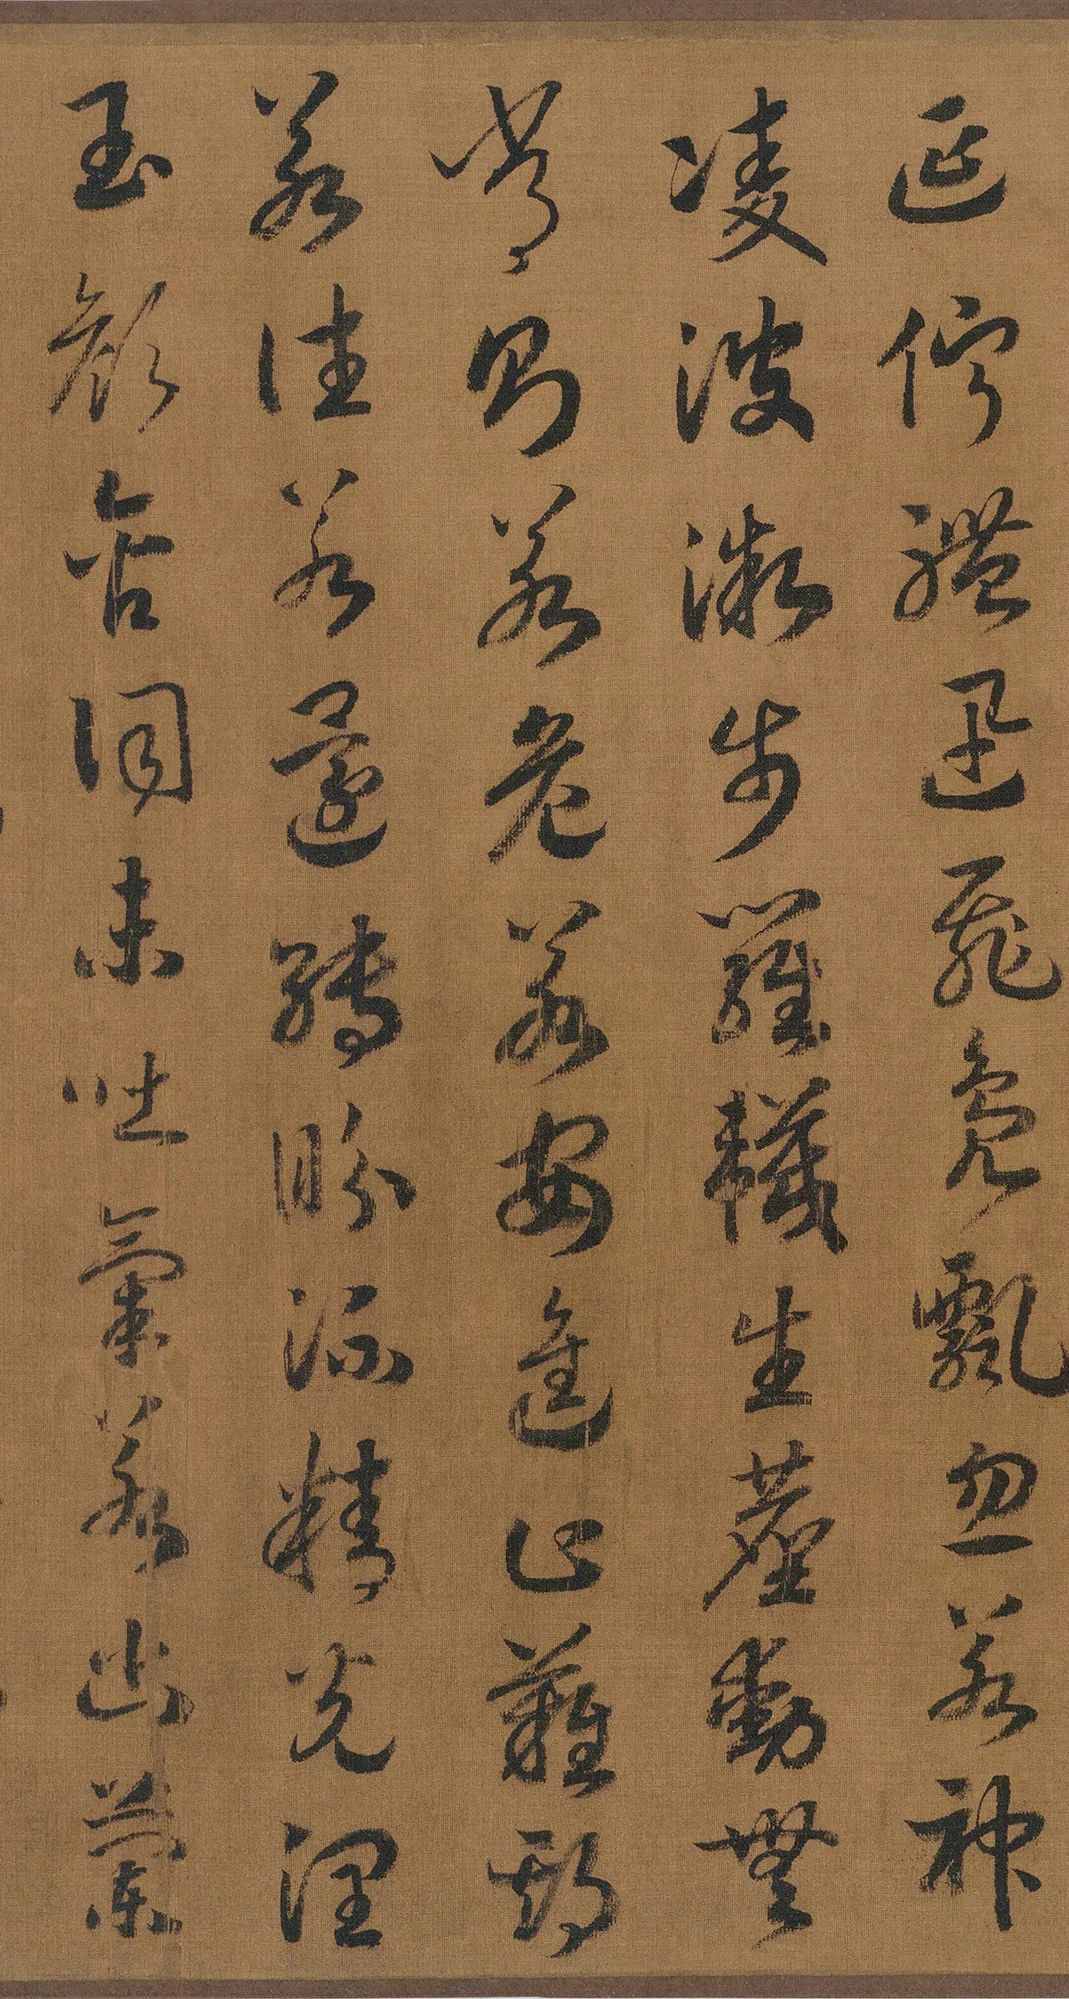 延佇體迅飛鳧飄忽若神
凌波微步羅韈生塵動無
常則若危若安進止難期
若往若還轉盼流精光潤
玉顏含詞未吐氣若幽蘭